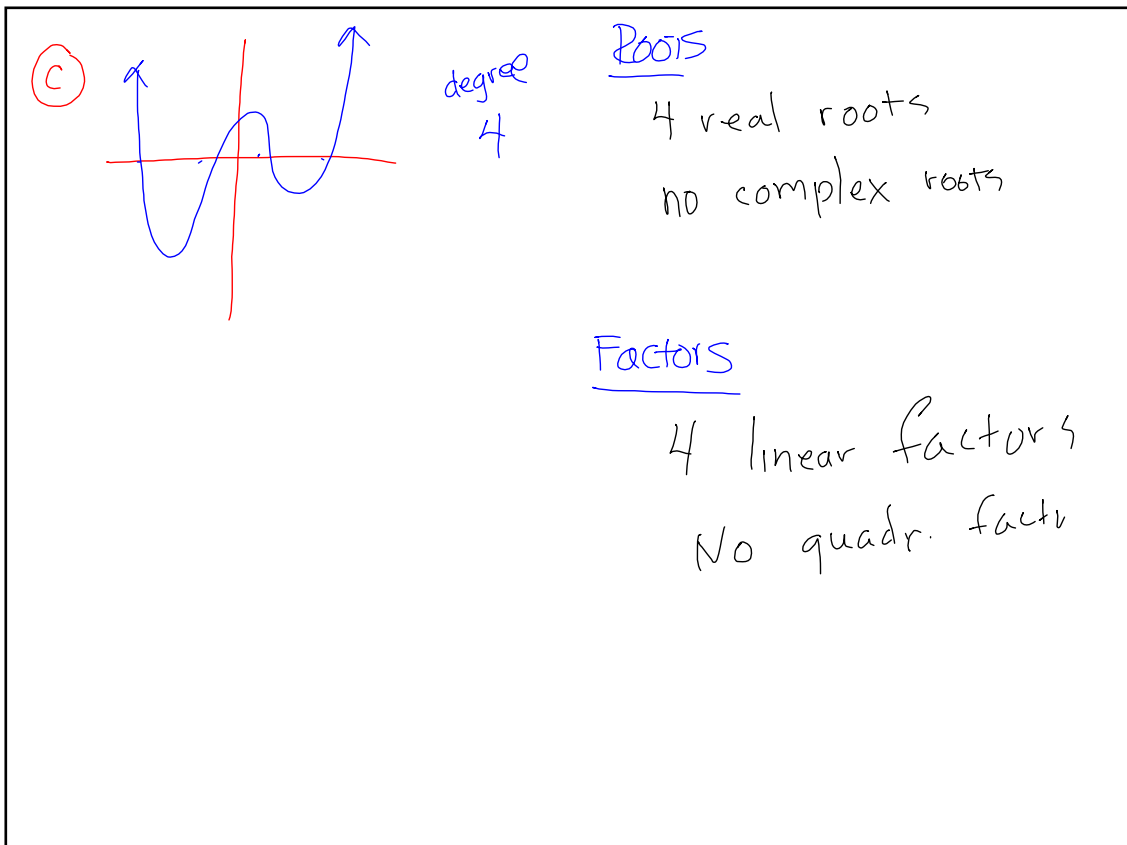 C
degree
4
Roots
4 real roots
no complex roots
Factors
4 linear factors
No quadr. facto